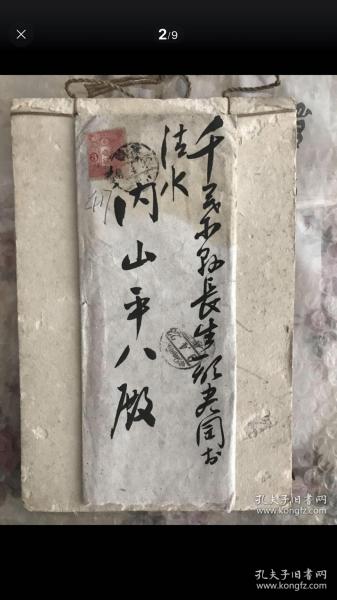 2/9
千葉県長生郡
清水
内山平八殿
孔夫子旧书网
www.kongfz.com
孔夫子旧书网
www.kongfz.com